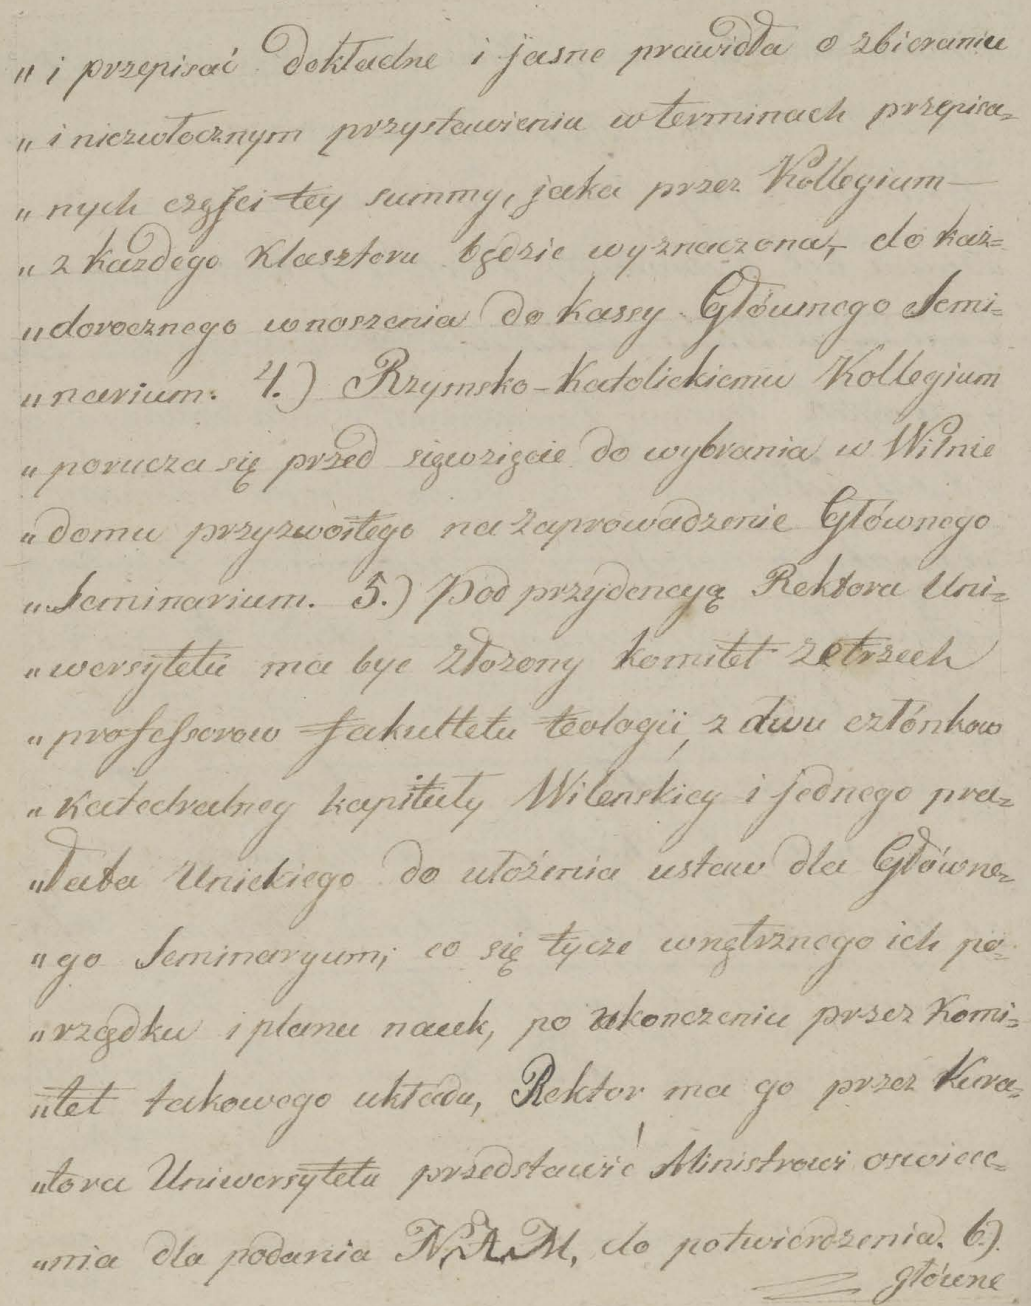 „ i przepisać dokładne i jasne prawidła o zbieraniu
„ i niezwłocznym przystawieniu w terminach przepisa=
„ nych części tey summy, jaka przez Kollegium —
„ z każdego Klasztoru będzie wyznaczona, do każ=
„ dorocznego wnoszenia do kassy Głównego Semi=
„ narium. 4.) Rzymsko-Katolickiemu Kollegium
„ porucza się przed sięwzięcie do wybrania w Wilnie
„ domu przyzwoitego na zaprowadzenie Głównego
„ Seminarium. 5.) Pod przydencyą Rektora Uni=
„ wersytetu ma byc złozony komitet ze trzech
„ professorow fakultetu teologii, z dwu człónkow
„ Katedralney kapituły Wilenskiey i jednego pra=
„ łata Unickiego do ułożenia ustaw dla Główne=
„ go Seminaryum; co się tycze wnętrznego ich po=
„ rządku i planu nauk, po ukonczeniu przez Komi=
„ tet takowego układu, Rektor ma go przez Kura=
„ tora Uniwersytetu przedstawić Ministrowi oswiece=
„ nia dla podania N. A. M. do potwierdzenia. 6.)
główne